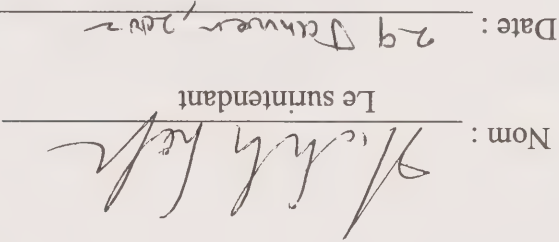 Nom :
Le surintendant
Date : 29 Janvier, 2002